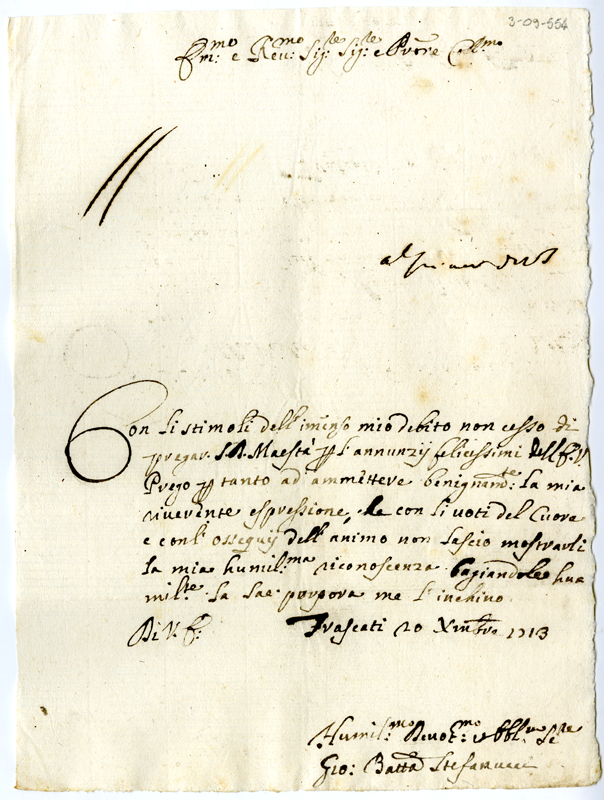 3-09-554
Em:mo e Reu:mo Sig:re Sig:re e Prōne Col:mo
Con li stimoli dell'imēnso mio debito non cesso di
pregar. S.D. Maestà p l'annunzij felicissimi dell'E.V.
Prego p tanto ad ammettere benignamte: la mia
riverente espressione, che con li voti del Cuore
e con l'ossequij dell'animo non lascio mostrarli
la mia humil:ma riconoscenza. bagiandole hu=
mil:te la Sac: porpora me l'inchino.
Di V. E:
Frascati 20 Xmbre 1713
Humil:mo Devot:mo et obbl:mo Se:re
Gio: Batta Stefanucci